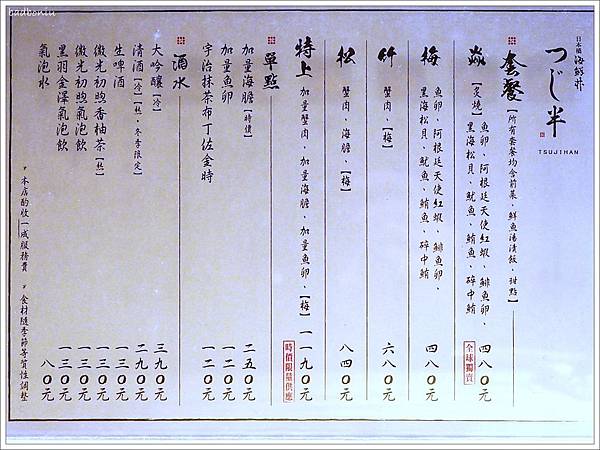 badboniu
日本橋
海鮮丼
つじ半
TSUJIHAN
套餐【所有套餐均含前菜，鮮魚湯漬飯，甜點】
焱【炙燒】魚卵，阿根廷天使紅蝦，鯡魚卵，
黑海松貝，魷魚，鮪魚，碎中鮪
四八〇元
全球獨賣
梅 魚卵，阿根廷天使紅蝦，鯡魚卵，
黑海松貝，魷魚，鮪魚，碎中鮪
四八〇元
竹 蟹肉，【梅】
六八〇元
松 蟹肉，海膽，【梅】
八四〇元
特上 加量蟹肉，加量海膽，加量魚卵，【梅】一一九〇元
時價限量供應
單點
加量海膽【特價】 二五〇元
加量魚卵 一二〇元
宇治抹茶布丁佐金時 一二〇元
酒水
大吟釀【冷】 三九〇元
清酒【冷】【熱，冬季限定】 二九〇元
生啤酒 一三〇元
微光初煦香柚茶【熱】 一三〇元
微光初煦氣泡飲 一三〇元
黑羽金澤氣泡飲 一三〇元
氣泡水 八〇元
*本店酌收一成服務費 *食材隨季節等質性調整